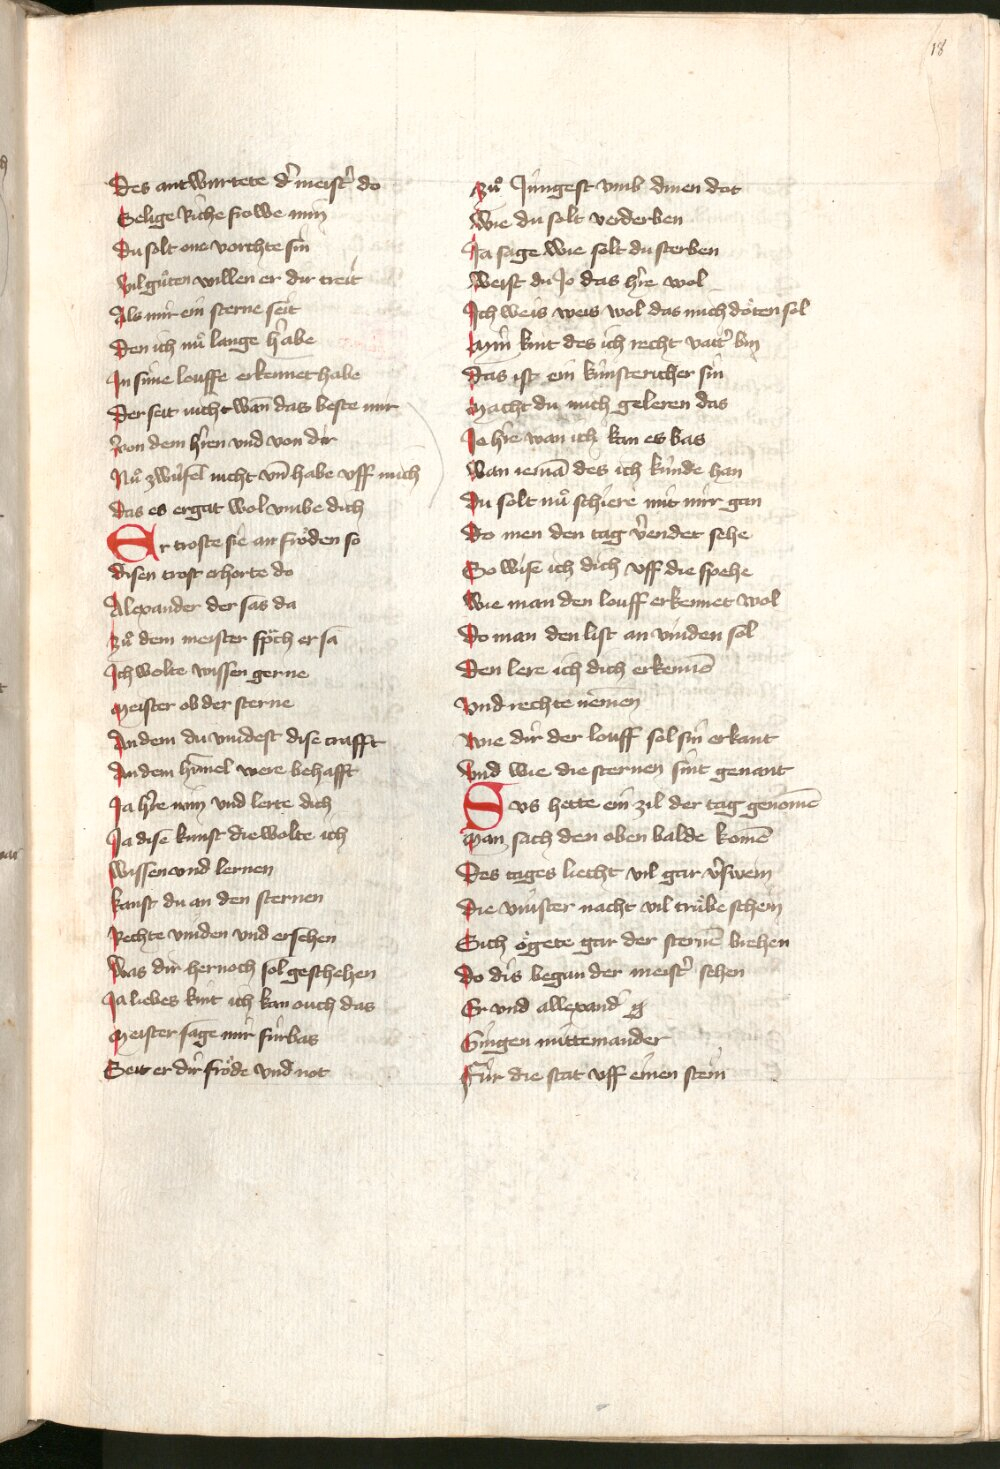 18
Des antwurtete d̾ meist̾ do
Selige Riche frowe min
Du solt one vorchte sin
Vil gůten willen er dir treit
Als mir ein sterne seit
Den ich nů lange h̾abe
In sime louffe erkennet habe
Der seit nicht wan̄ das beste mir
Von dem h̾ren vnd von dir
Nů zwifel nicht vn̄ habe vff mich
Das es ergat wol vmbe dich
Er troste sie an froͤden so
disen trost erhorte do
Alexander der sas da
Zů dem meister sp̾ch er sā
Ich wolte wissen gerne
Meister ob der sterne
An dem du vindest dise crafft
An dem hȳmel were behafft
Ja h̾re min vnd lerte dich
Ja dise kunst die wolte ich
Wissen vnd lernen
kanst du an den sternen
Rechte vinden vnd ersehen
Was dir hernoch sol geschehen
Ja liebes kint ich kan ouch das
Meister sage mir fúrbas
Seit er dir froͤde vnd not
Zů Jungest vmb dinen dot
Wie du solt verderben
Ja sage wie solt du sterben
Weist du Jo das h̾re wol
Ich weis weis wol das mich doͤten sol
Min kint des ich recht vatt̾ bin
Das ist ein kúnstericher sin
Macht du mich geleren das
Jo h̾re wan ich kan es bas
Wan iemā des ich kúnde han
Du solt nů schiere mit mir gan
Do men den tag v̾endet sehe
So wise ich dich vff die spehe
Wie man den louff erkennet wol
Do man den list an vinden sol
Den lere ich dich erkennē
Vnd rechte nemen
Wie dir der louff sol sin erkant
Vnd wie die sternen sint genant
Sus hette ein zil der tag genomē
Man sach den oben balde komē
Des tages liecht vil gar v̾swein
Die vinster nacht vil truͤbe schein
Sich oͤgete gar der sternē biehen
Do dis began der meist̾ sehen
Er vnd allexand̾
Gingen mittemander
Fúr die stat vff einen stein